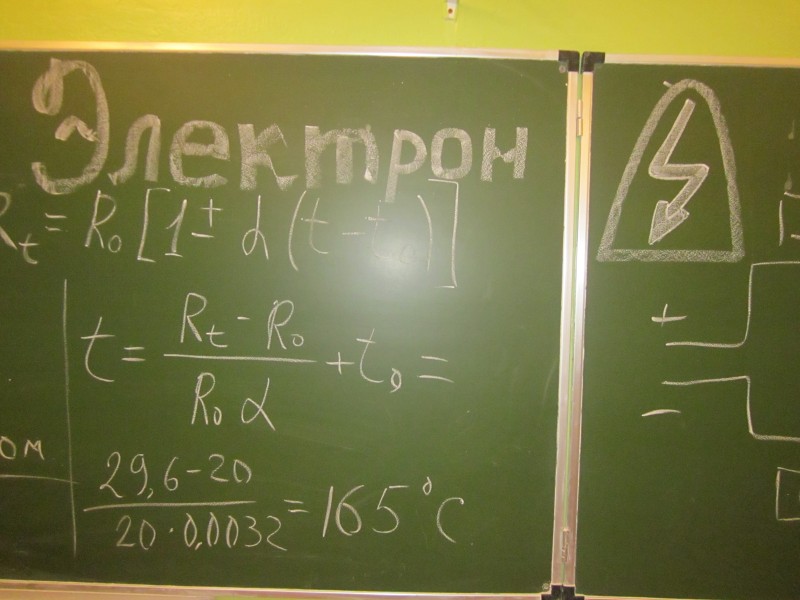 Электрон
Rt = R0 [1 ± α (t - t0)]
t = (Rt - R0) / (R0 α) + t0 =
ом
(29,6-20) / (20·0,0032) = 165°C
+
-